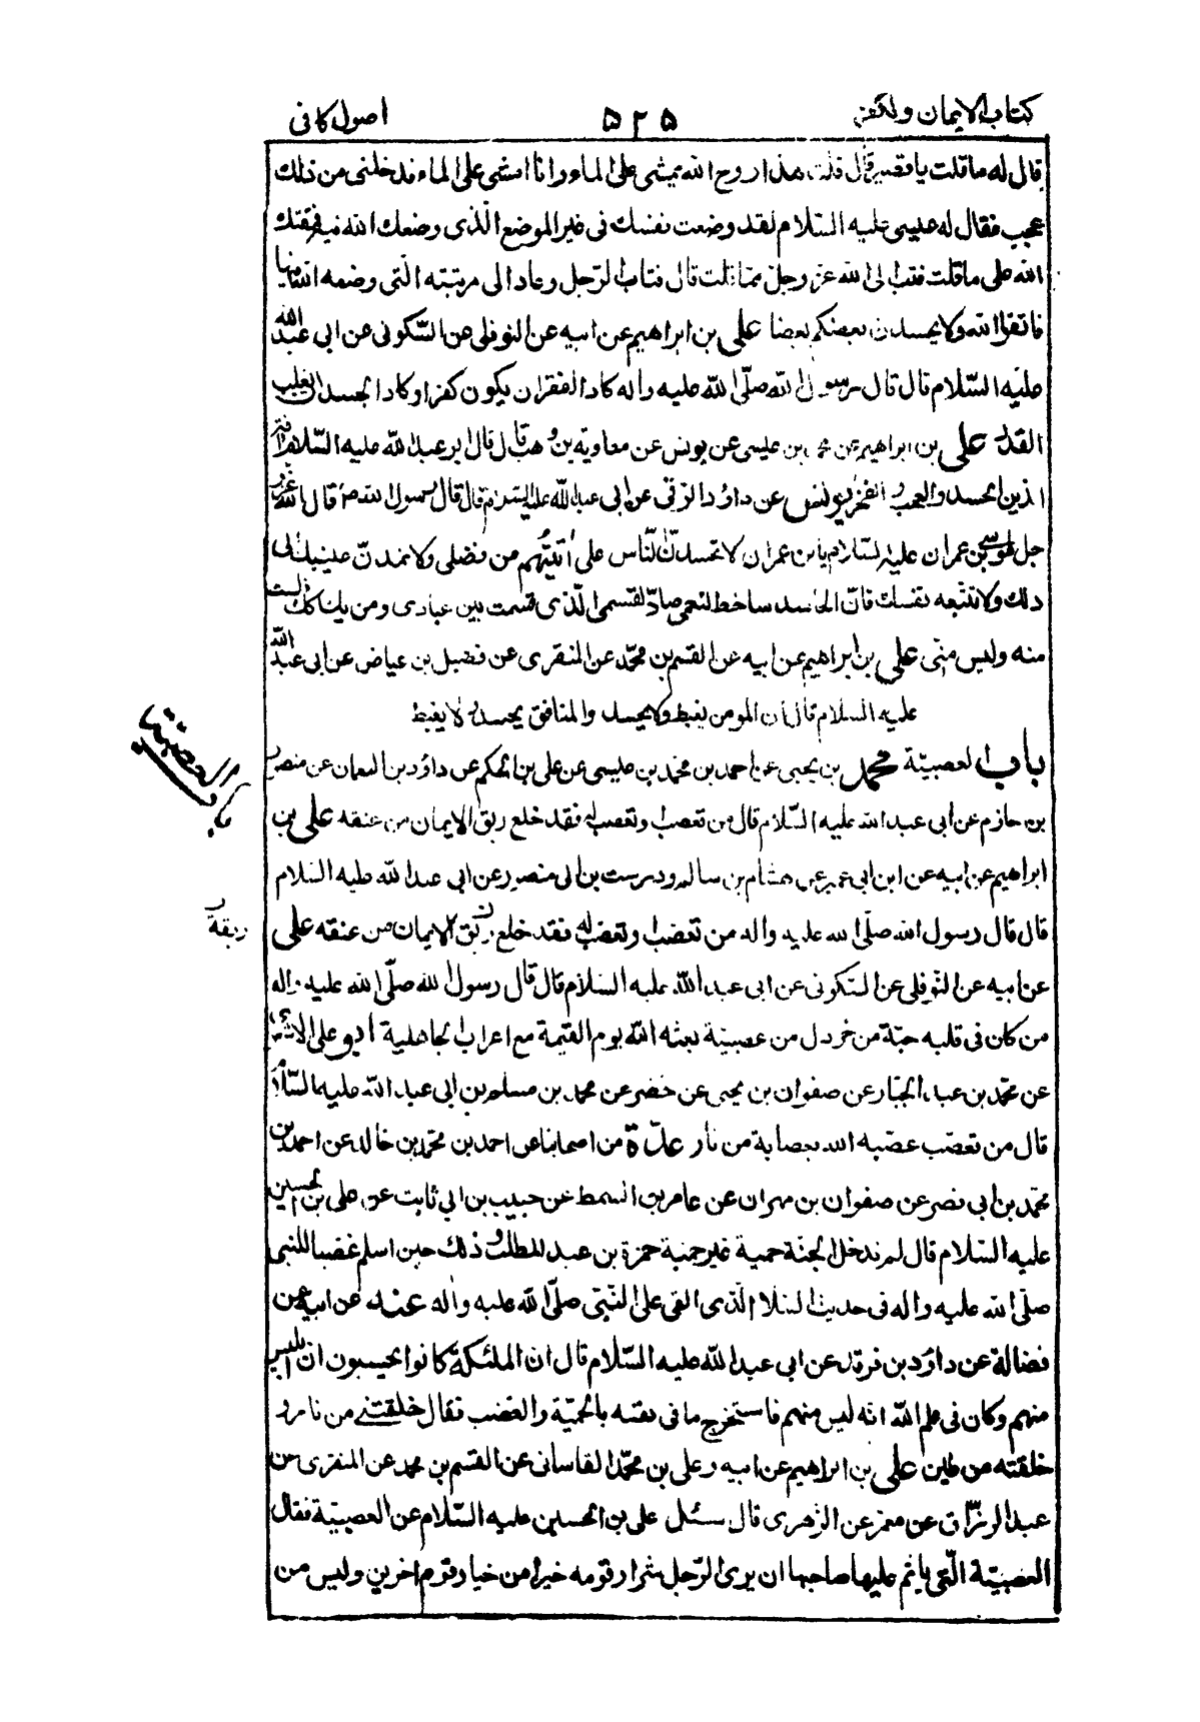 كتاب الايمان والكفر ۵۲۵ اصول كافى
قال له ما قلت يا قصير قال قلت هذا روح الله يمشى على الماء وانا امشى على الماء فدخلنى من ذلك
عجب فقال له عيسى عليه السّلام لقد وضعت نفسك فى غير الموضع الّذى وضعك الله فيه فمقتك
الله على ما قلت فتب الى الله عز وجل ممّا قلت قال فتاب الرّجل وعاد الى مرتبته الّتى وضعه الله فيها
فاتقوا الله ولا يحسدن بعضكم بعضا على بن ابراهيم عن ابيه عن النوفلى عن السّكونى عن ابى عبد الله
عليه السّلام قال قال رسول الله صلّى الله عليه واله كاد الفقر ان يكون كفرا وكاد الحسد ان يغلب
القدر على بن ابراهيم عن محمد بن عيسى عن يونس عن معاوية بن وهب قال قال ابو عبد الله عليه السّلام افة
الدين الحسد والعجب والفخر يونس عن داود الرقى عن ابى عبد الله عليه السّلام قال قال رسول الله ص قال الله عز و
جل لموسى بن عمران عليه السّلام يا بن عمران لا تحسدنّ النّاس على ما اتيتهم من فضلى ولا تمدنّ عينيك الى
ذلك ولا تتبعه نفسك فانّ الحاسد ساخط لنعمى صادّ لقسمى الّذى قسمت بين عبادى ومن يك كذلك فلست
منه وليس منّى على بن ابراهيم عن ابيه عن القسم بن محمّد عن المنقرى عن فضيل بن عياض عن ابى عبد الله
عليه السلام قال ان المومن يغبط ولا يحسد والمنافق يحسد ولا يغبط
باب العصبيّة محمد بن يحيى عن احمد بن محمد بن عيسى عن على بن الحكم عن داود بن النعمان عن منصور
بن حازم عن ابى عبد الله عليه السّلام قال من تعصب او تعصب له فقد خلع ربق الايمان من عنقه على بن
ابراهيم عن ابيه عن ابن ابى عمير عن هشام بن سالم ودرست بن ابى منصور عن ابى عبد الله عليه السلام
قال قال رسول الله صلّى الله عليه واله من تعصب او تعصب له فقد خلع ربق الايمان من عنقه على
عن ابيه عن النّوفلى عن السّكونى عن ابى عبد الله عليه السّلام قال قال رسول الله صلّى الله عليه واله
من كان فى قلبه حبّة من خردل من عصبيّة بعثه الله يوم القيمة مع اعراب الجاهلية ابو على الاشعرى
عن محمّد بن عبد الجبّار عن صفوان بن يحيى عن خضر عن محمد بن مسلم عن ابى عبد الله عليه السّلام
قال من تعصّب عصّبه الله بعصابة من نار عدّة من اصحابنا عن احمد بن محمّد بن خالد عن احمد بن
محمّد بن ابى نصر عن صفوان بن مهران عن عامر بن السمط عن حبيب بن ابي ثابت عن على بن الحسين
عليه السّلام قال لم تدخل الجنّة حمية غير حمية حمزة بن عبد المطلب وذلك حين اسلم غضبا للنبى
صلّى الله عليه واله فى حديث السّلا الّذى القى على النّبىّ صلّى الله عليه واله عنه عن ابيه عن
فضالة عن داود بن فرقد عن ابى عبد الله عليه السّلام قال ان الملئكة كانوا يحسبون ان ابليس
منهم وكان فى علم الله انه ليس منهم فاستخرج ما فى نفسه بالحميّة والغضب فقال خلقتنى من نار و
خلقته من طين على بن ابراهيم عن ابيه وعلى بن محمّد القاسانى عن القسم بن محمد عن المنقرى عن
عبد الرزّاق عن معمر عن الزّهرى قال سئل على بن الحسين عليه السّلام عن العصبيّة فقال
العصبيّة الّتى ياثم عليها صاحبها ان يرى الرّجل شرار قومه خيرا من خيار قوم اخرين وليس من
باب العصبيّة
ربقة